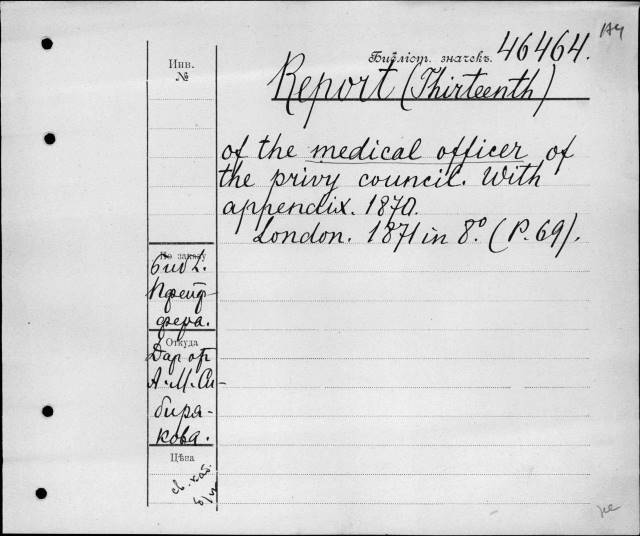 Ину
Инв.
№
Библіот. значекъ. 46464.
Report (Thirteenth)
of the medical officer of
the privy council. With
appendix. 1870.
London. 1871 in 8º. (P. 69).
По заказу
библ.
Пфейф-
фера.
Откуда
Дар от
А. М. Си-
биря-
кова.
Цѣна
св. кат.